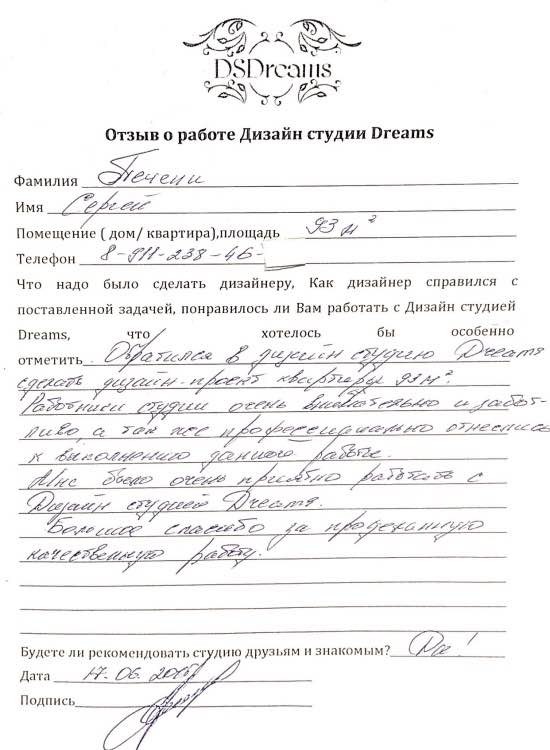 DSDreams
Отзыв о работе Дизайн студии Dreams
Фамилия Печени
Имя Сергей
Помещение ( дом/ квартира),площадь 93 м²
Телефон 8-911-238-46-
Что надо было сделать дизайнеру, Как дизайнер справился с
поставленной задачей, понравилось ли Вам работать с Дизайн студией
Dreams, что хотелось бы особенно
отметить Обратился в дизайн студию Dreams
сделать дизайн-проект квартиры 93 м².
Работники студии очень внимательно и забот-
ливо, а так же профессионально отнеслись
к выполнению данной работе.
Мне было очень приятно работать с
Дизайн студией Dreams.
Большое спасибо за проделанную
качественную работу.
Будете ли рекомендовать студию друзьям и знакомым? Да!
Дата 17.06.
Подпись